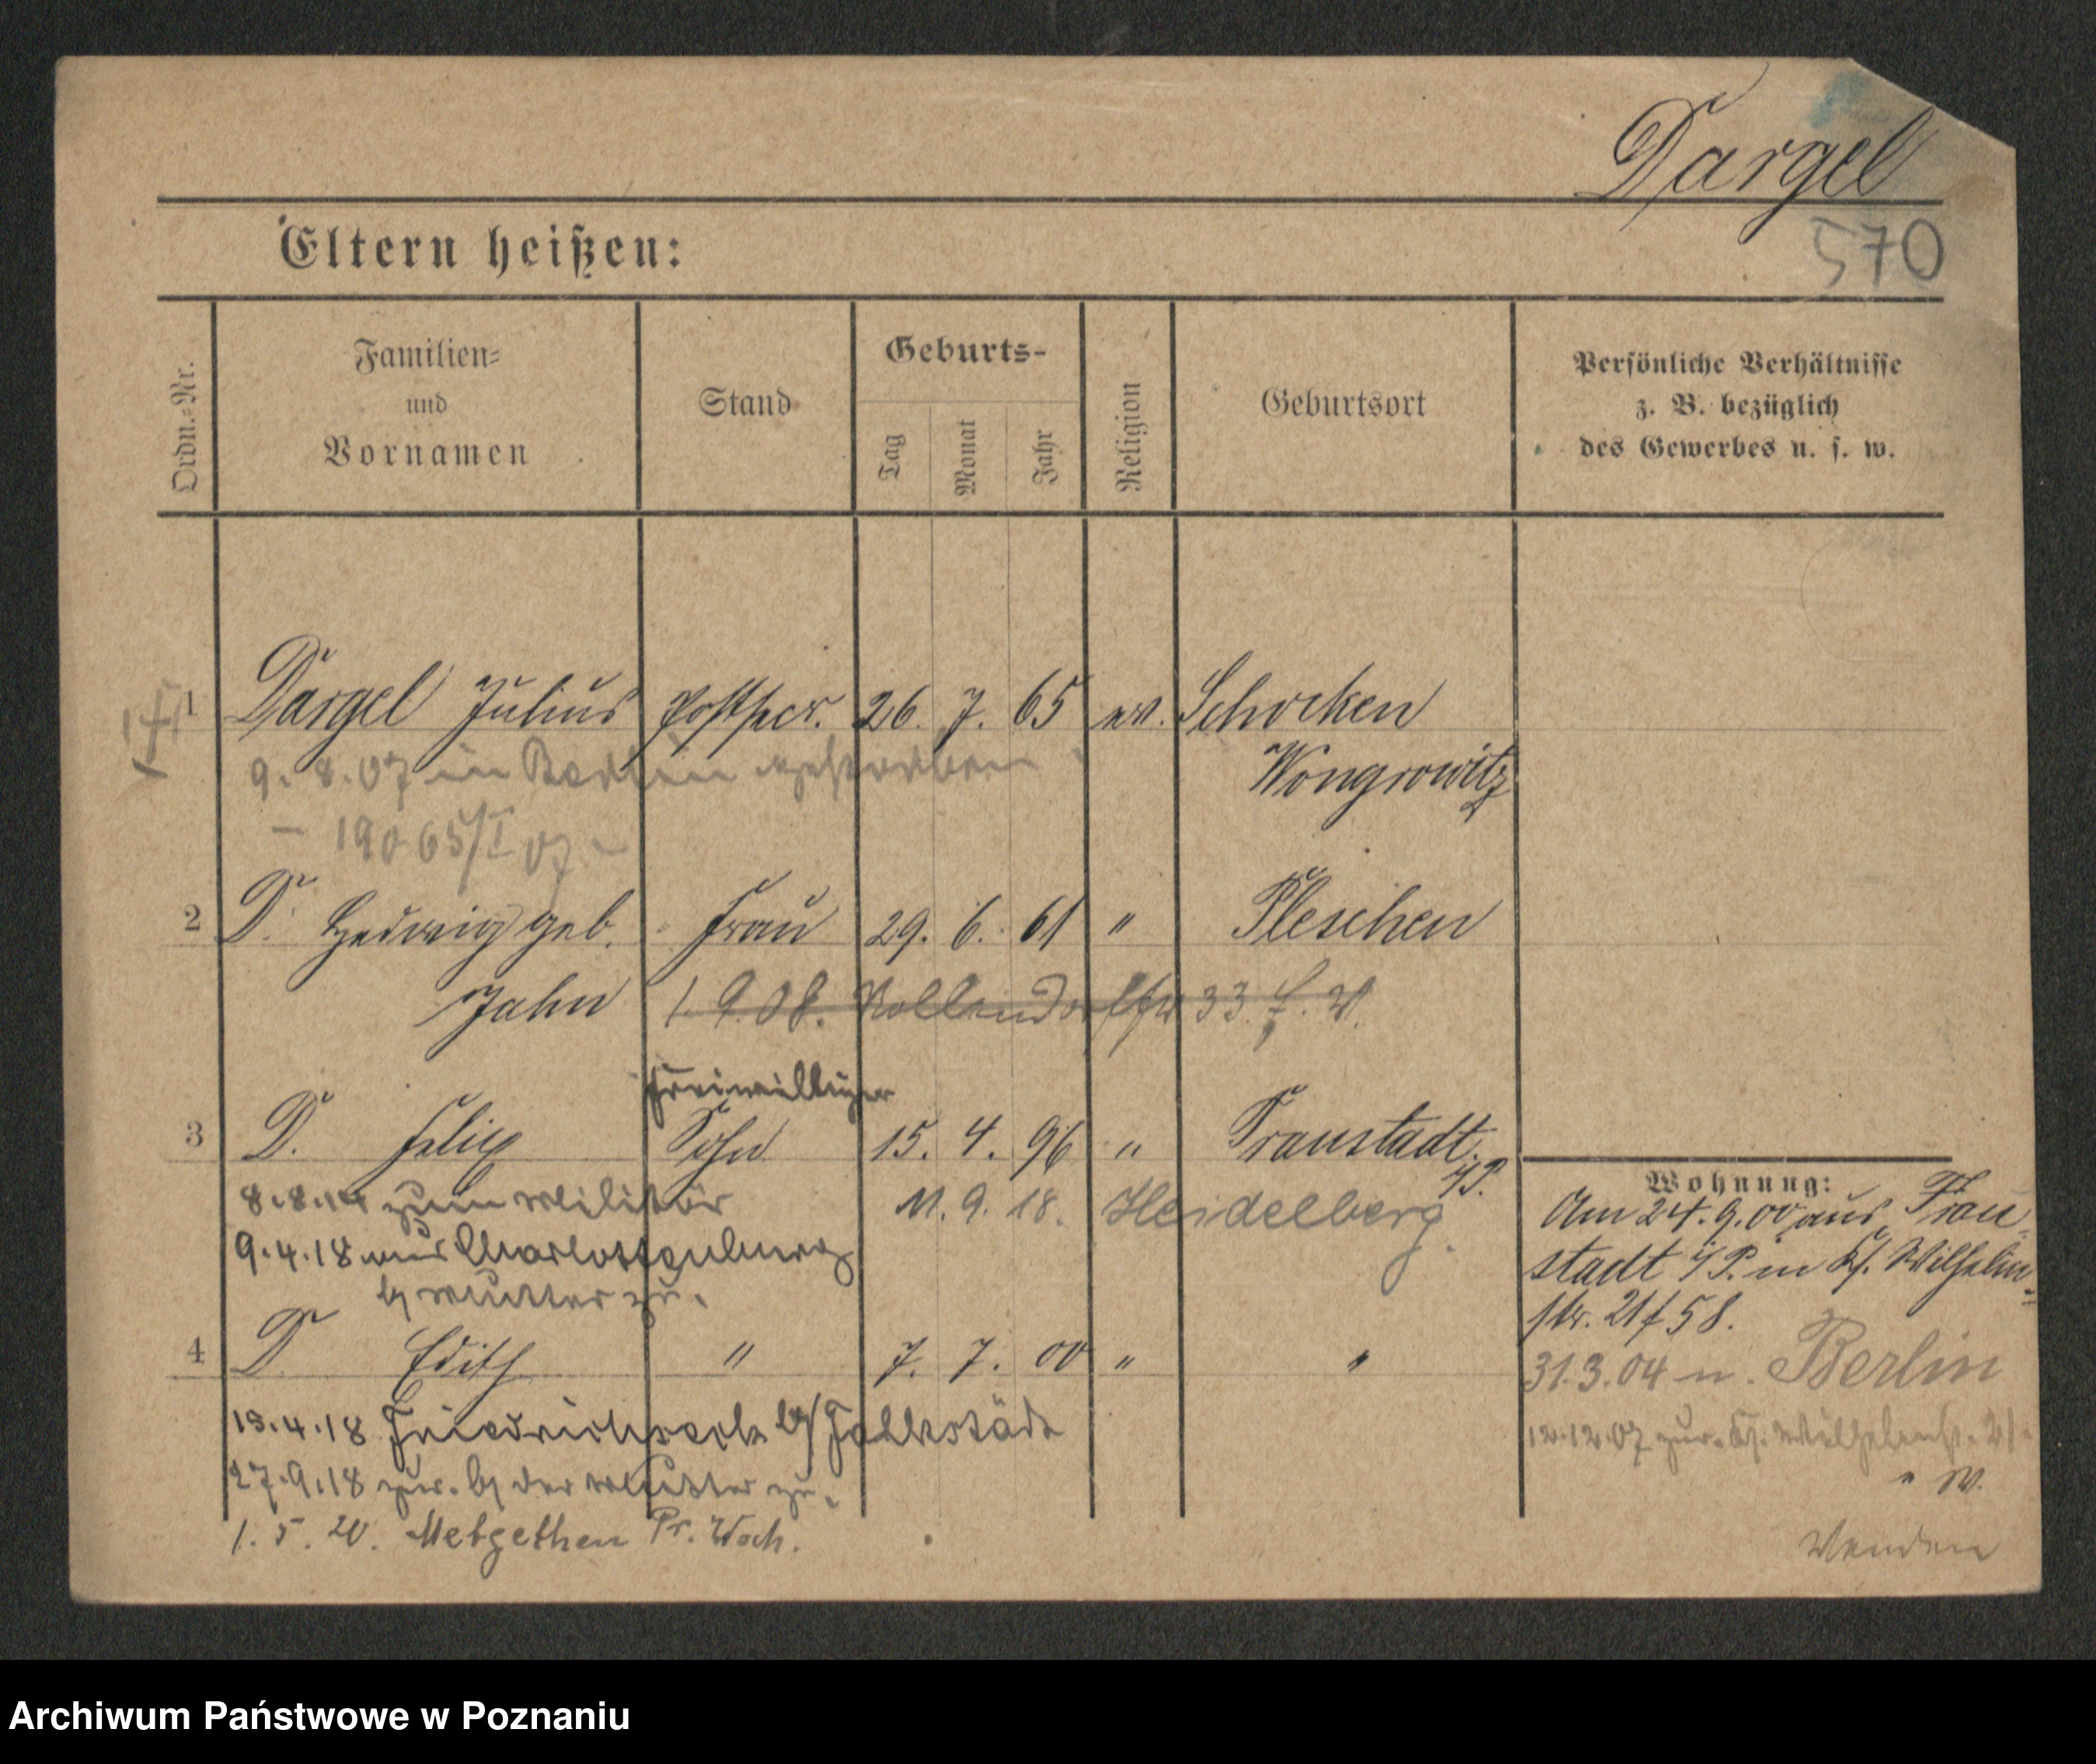 Dargel
570
Eltern heißen:
Ordn.-Nr.
Familien-
und
Vornamen
Stand
Geburts-
Tag
Monat
Jahr
Religion
Geburtsort
Persönliche Verhältnisse
z. B. bezüglich
des Gewerbes u. s. w.
1 Dargel Julius Postsecr. 26. 7. 65 ev. Schocken
9. 8. 07 in Berlin gestorben Wongrowitz
- 19065/I 07 -
2 D. Hedwig geb. Frau 29. 6. 61 " Pleschen
Jahn 1. 9. 08. Nollendorfstr 33
Freiwilliger
3 D. Felix Sohn 15. 4. 96 " Fraustadt
i/P.
8.8.14 zum Militär 11. 9. 18. Heidelberg
9.4.18 aus Charlottenburg
b/ Mutter zu.
4 D. Edith " 7. 7. 00 " "
15.4.18 Friedrichs b/
27.9.18 zur. b/ der Mutter zu.
1. 5. 20. Metgethen Pr.
Wohnung:
Am 24. 9. 00 aus Frau-
stadt i/P. in Kf. Wilhelm-
str. 21
31.3.04 n. Berlin
12.12.07 zur.
" W.
Wenden
Archiwum Państwowe w Poznaniu